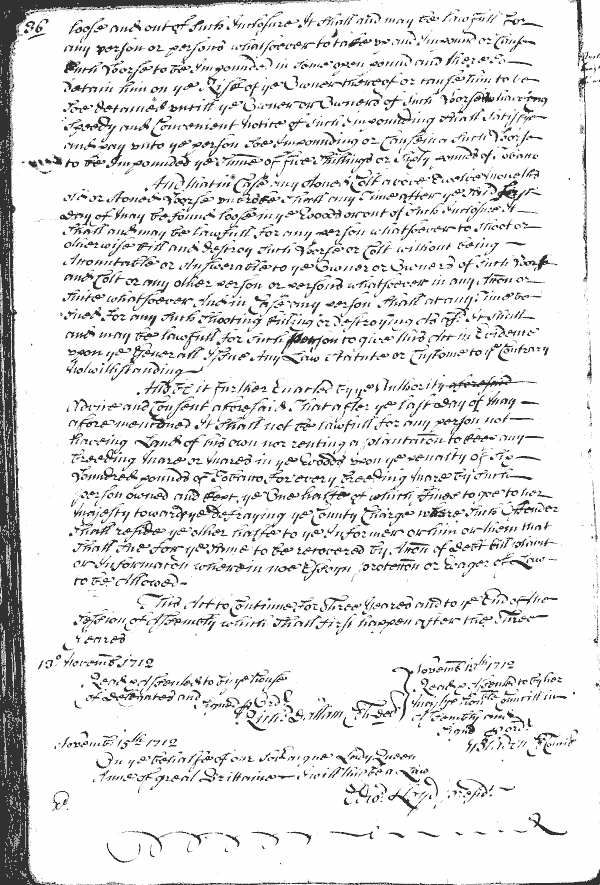 36 loose and out of such Inclosure It shall and may be lawfull for
any person or persons whatsoever to take up and Impound or Cause
such Horse to be Impounded in some open pound and there to
detain him on ye Risk of ye Owner thereof or cause him to be
soe detained untill ye Owner or Owners of such Horse haveing
speedy and Convenient Notice of such impounding shall satisfye
and pay unto ye person soe Impounding or Causeing such Horse
to be Impounded ye summe of five shillings or sixty pounds of Tobacco
And that in Case any stoned Colt above Twelve moneths
old or stoned Horse unbroke shall any time after ye said last
day of May be found loose in ye Woods or out of such Inclosure It
shall and may be lawfull for any person whatsoever to shoot or
otherwise kill and destroy such Horse or Colt without being
Accountable or Answerable to ye Owner or Owners of such Horse
and Colt or any other person or persons whatsoever in any Accon or
suite whatsoever And in Case any person shall at any time be
sued for any such shooting killing or destroying as afd. It shall
and may be lawfull for such person to give this Act in Evidence
upon ye Generall Issue Any Law statute or Custome to ye Contrary
Notwithstanding
And be it further Enacted by ye Authority aforesaid
Advice and Consent aforesaid That after ye last day of May
aforemenconed It shall not be lawfull for any person not
haveing Land of his own nor renting a plantation to keep any
breeding Mare or Mares in ye Woods upon ye penalty of six
hundred pounds of Tobacco for every breeding Mare by such
person owned and kept, ye One halfe of which fine to goe to her
Majesty towards ye defraying ye County Charge where such Offender
shall reside ye other halfe to ye Informer or him or them that
shall sue for ye same to be recovered by Accon of debt bill plaint
or Information wherein noe Essoyn protection or wager of Law
to be Allowed
This Act to Continue for Three Yeares and to ye End of the
session of Assembly which shall first happen after the Three
Yeares
13o Novembr 1712
Read & Assented to by ye house
of Delegates and
signed p Ord
Richd Dallam Cl h Del
Novembr 1712
Read & Assented to by her
Majtys honble Councill in
Assembly and
signd p ord
Novembr 15th 1712
On ye behalfe of our soveraigne Lady Queen
Anne of great Brittaine &c I will this be a Law
Edwd Lloyd presidt